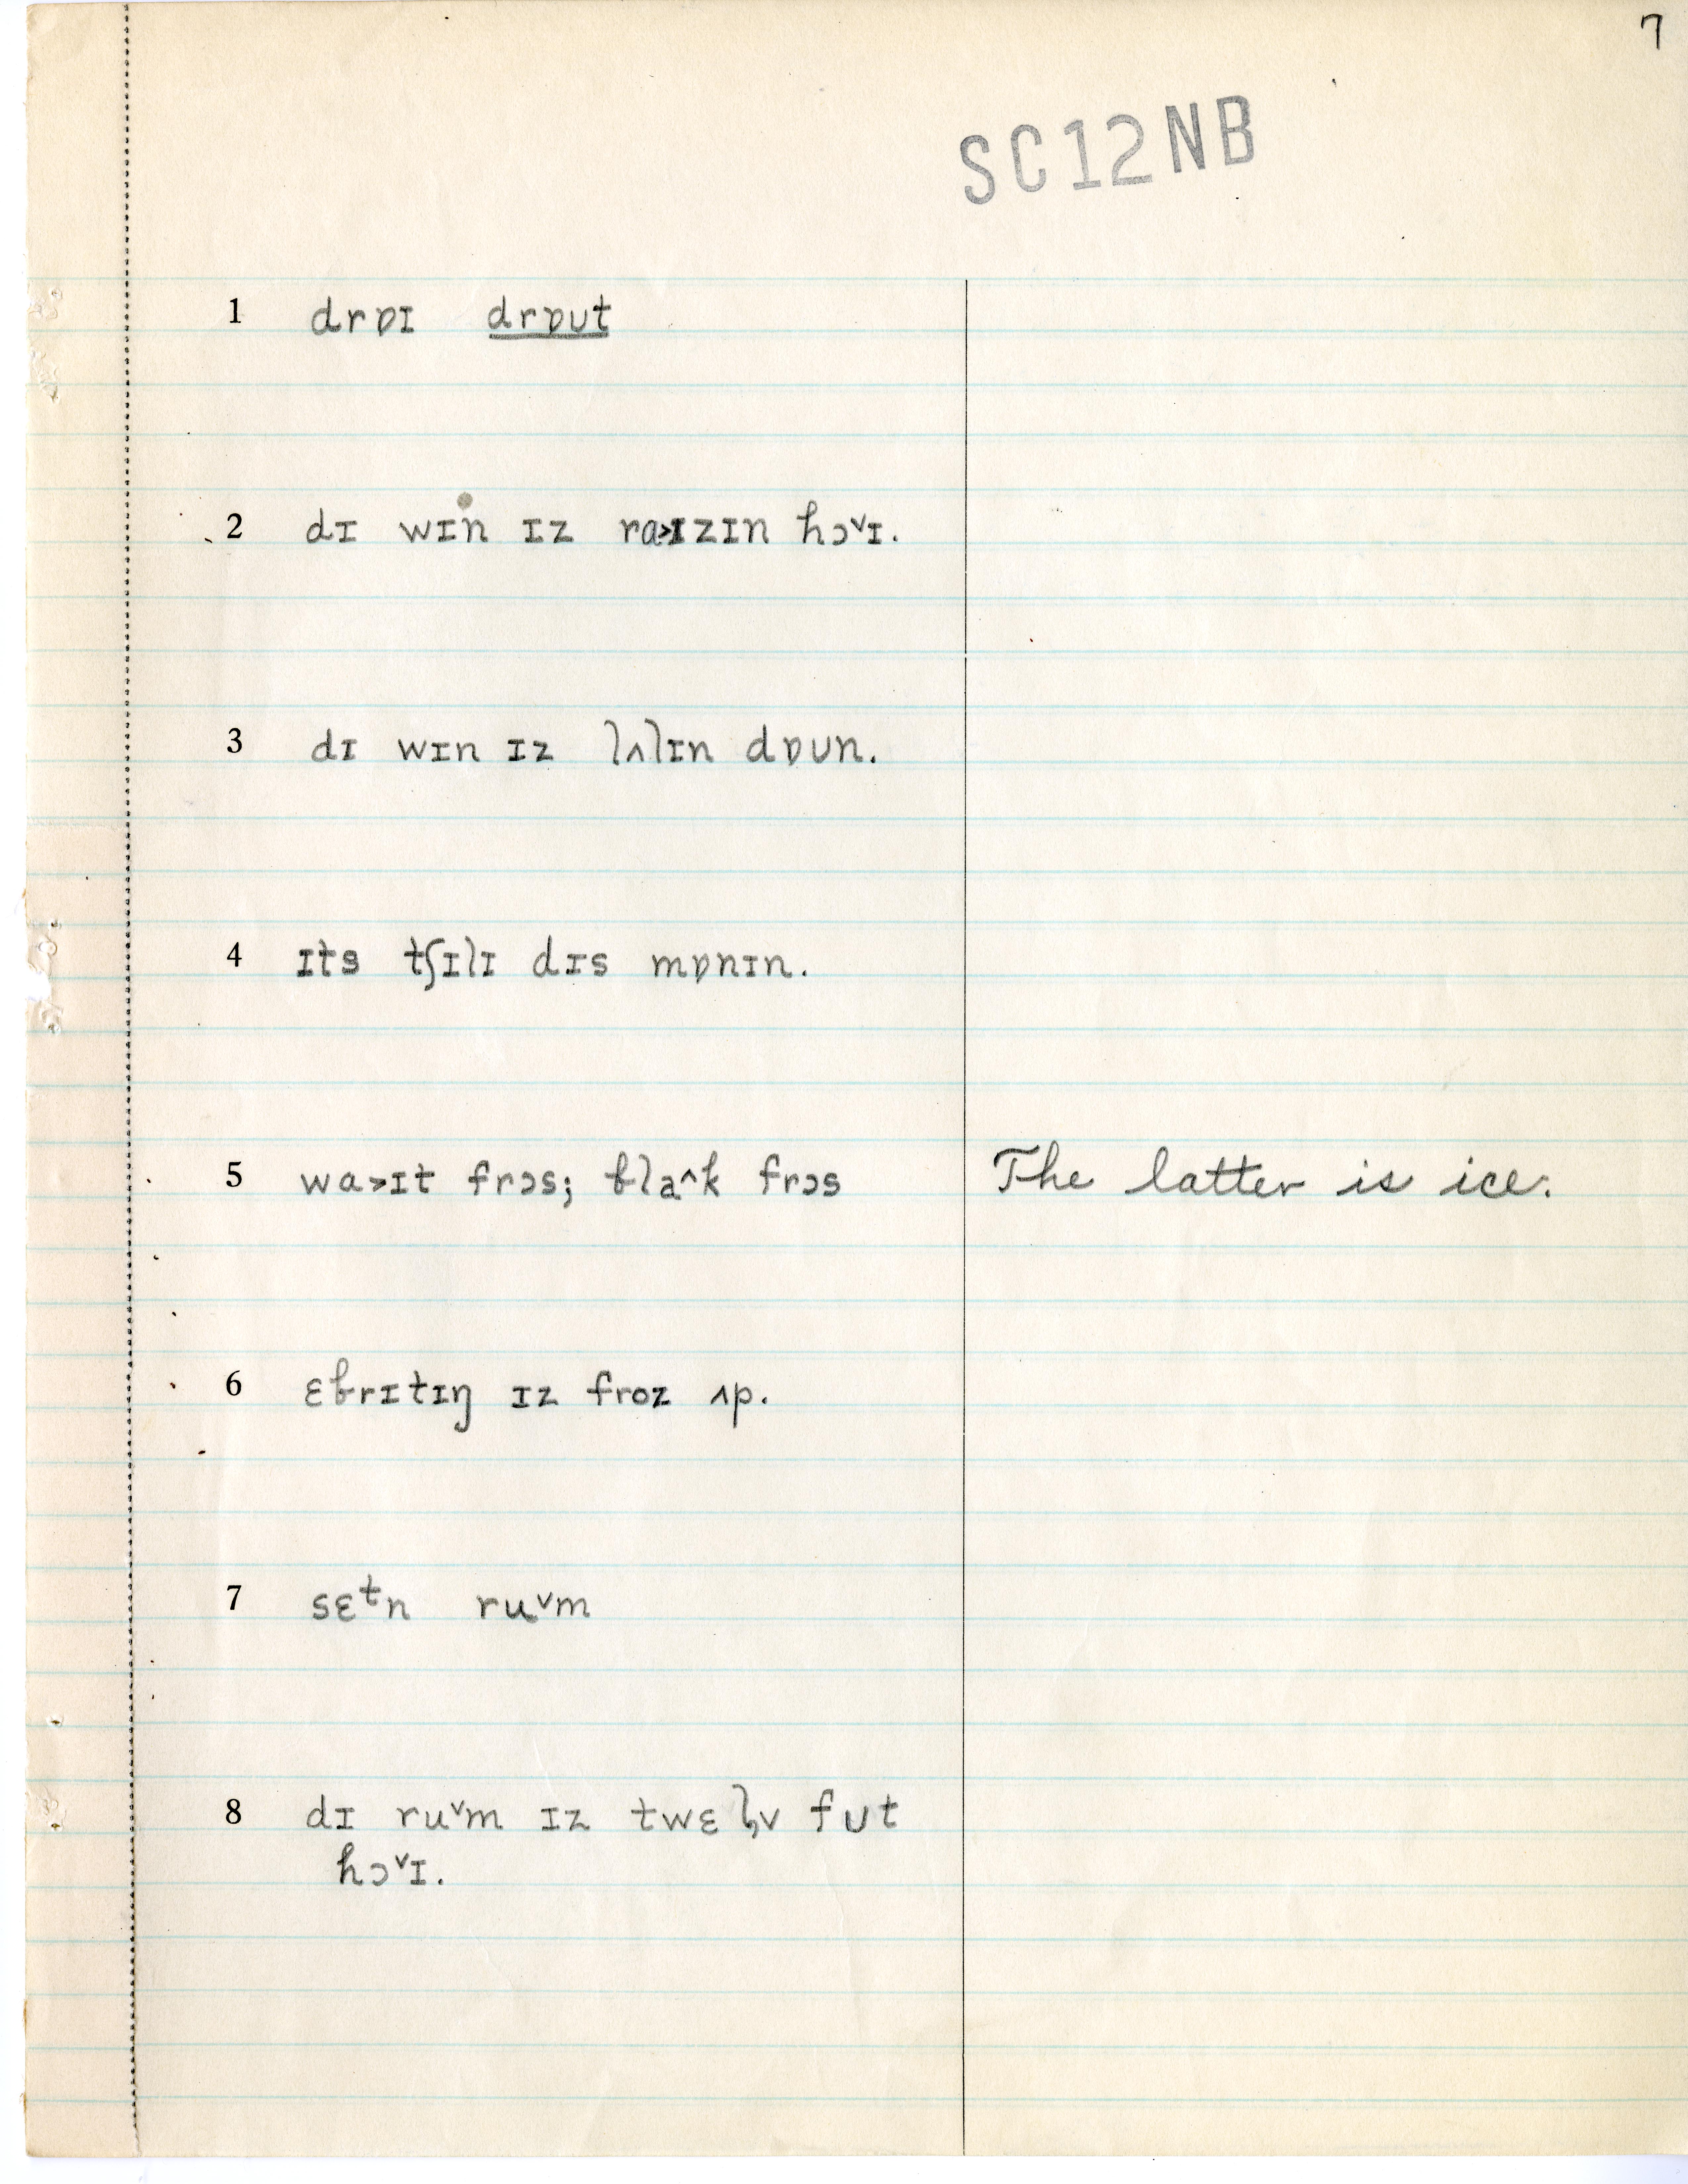 7
SC12NB
1 drɒɪ drɒut
2 dɪ wɪn ɪz ra>ɪzɪn hɔ˅ɪ.
3 dɪ wɪn ɪz lʌlɪn dɒun.
4 ɪts tʃɪlɪ dɪs mɒnɪn.
5 wa>ɪt frɔs; ɓla^k frɔs The latter is ice.
6 ɛɓrɪtɪŋ ɪz froz ʌp.
7 sɛᵗn ru˅m
8 dɪ ru˅m ɪz twɛl̡v fut
hɔ˅ɪ.